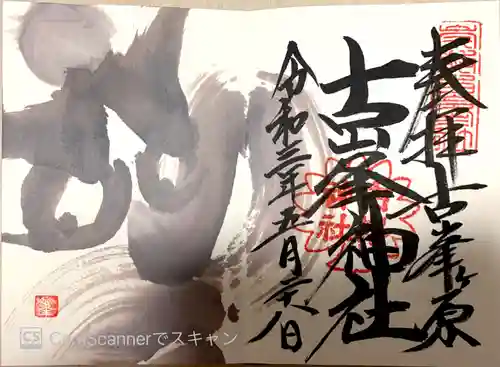 奉拝 古峯ヶ原
古峯神社
令和三年五月二十八日
CS CamScannerでスキャン